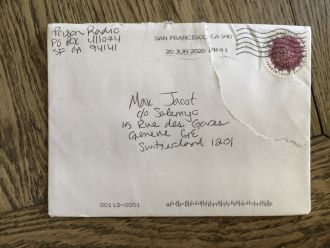 Prison Radio
PO Box 411074
SF CA 94141
SAN FRANCISCO CA 940
20 JUN 2020 PM 4 1
Max Jacot
c/o Salemyo
15 Rue des Gares
Geneve GE
Switzerland 1201
00112-0001